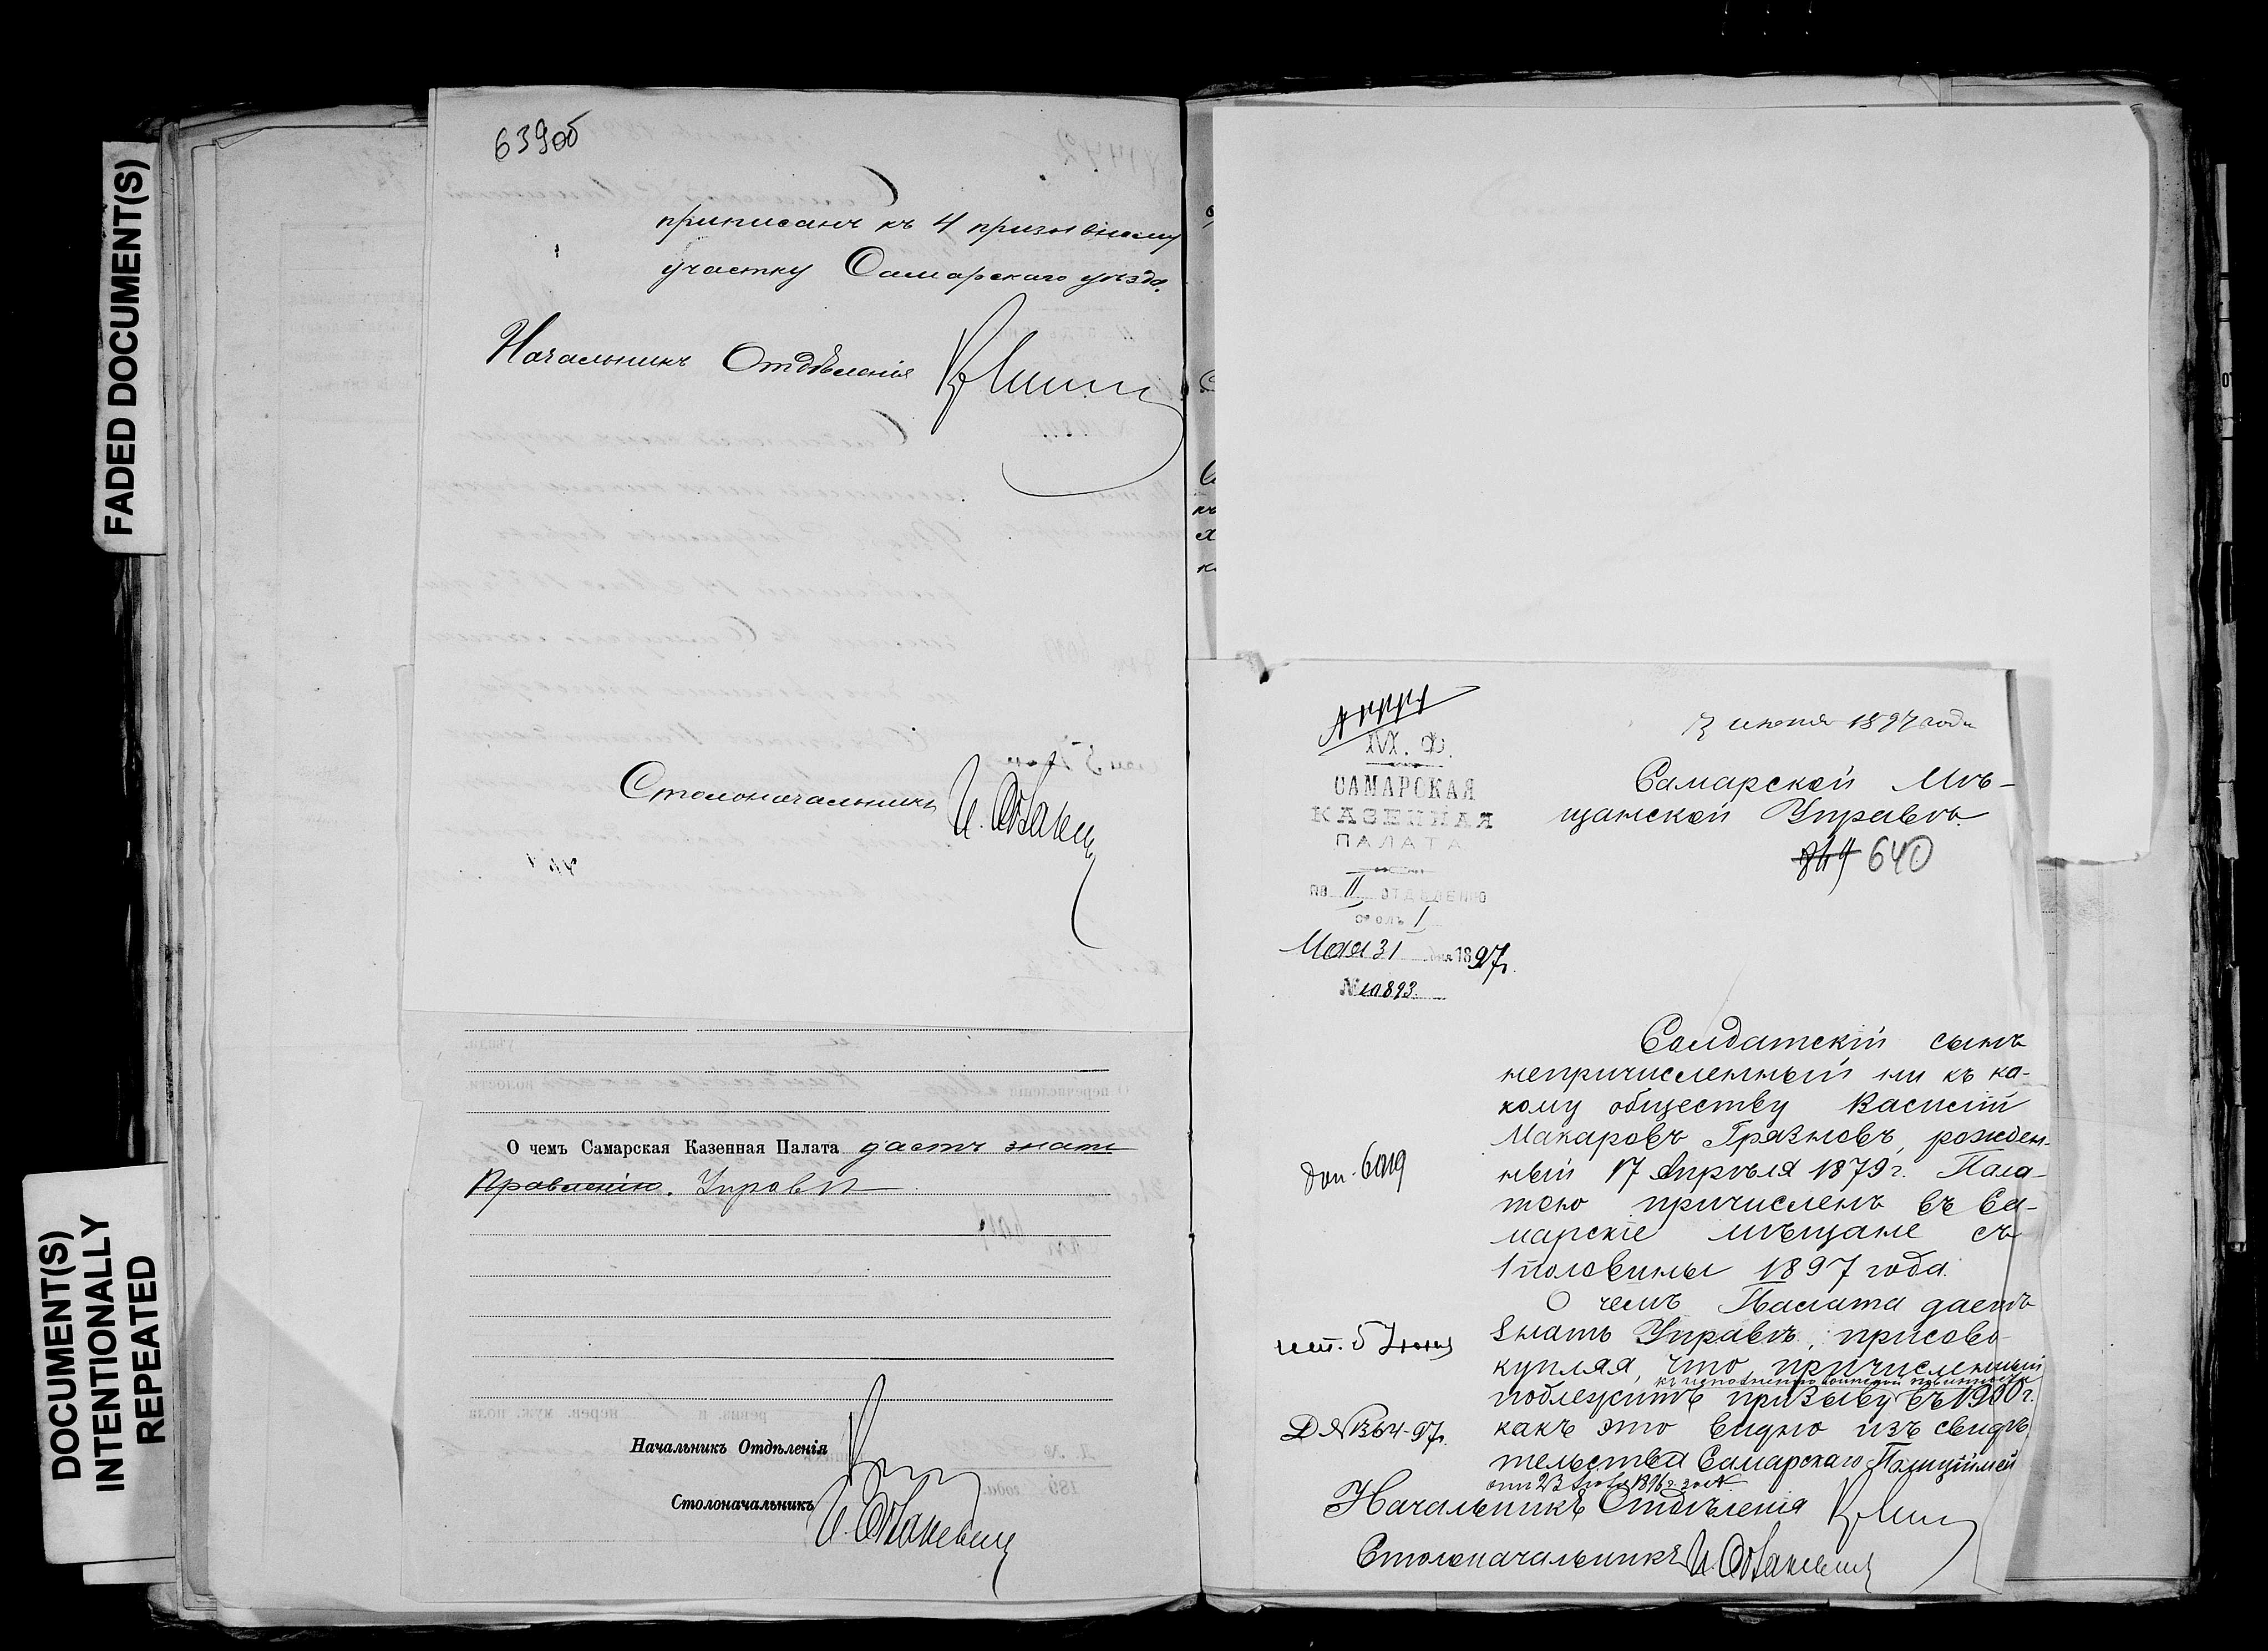 FADED DOCUMENT(S)
DOCUMENT(S)
INTENTIONALLY
REPEATED
639об
приписанъ къ 4 призывному
участку Самарскаго уѣзда.
Начальникъ Отдѣленія
Столоначальникъ
О чемъ Самарская Казенная Палата даетъ знать
Правленію. Управѣ
Начальникъ Отдѣленія
Столоначальникъ
М. Ф.
САМАРСКАЯ
КАЗЕННАЯ
ПАЛАТА
ПО II ОТДѢЛЕНІЮ
СТОЛЪ I
Мая 31 дня 1897г.
№ 10893.
7 июня 1897 года
Самарской Мѣ-
щанской Управѣ.
640
Солдатскій сынъ
непричисленный ни къ ка-
кому обществу Василій
Макаровъ Грязновъ, рожден-
ный 17 Апрѣля 1879г. Пала-
тою причисленъ въ Са-
марскіе мѣщане съ
1 половины 1897 года.
О чемъ Палата даетъ
знать Управѣ, присово-
купляя, что причисленный
къ исполненію воинской повинности
подлежитъ призыву въ 1900г.
какъ это видно изъ свидѣ-
тельства Самарскаго Полиціймей
доп. 6019
исп. 5 Июня
Д №1364-97г.
Начальникъ Отдѣленія
Столоначальникъ